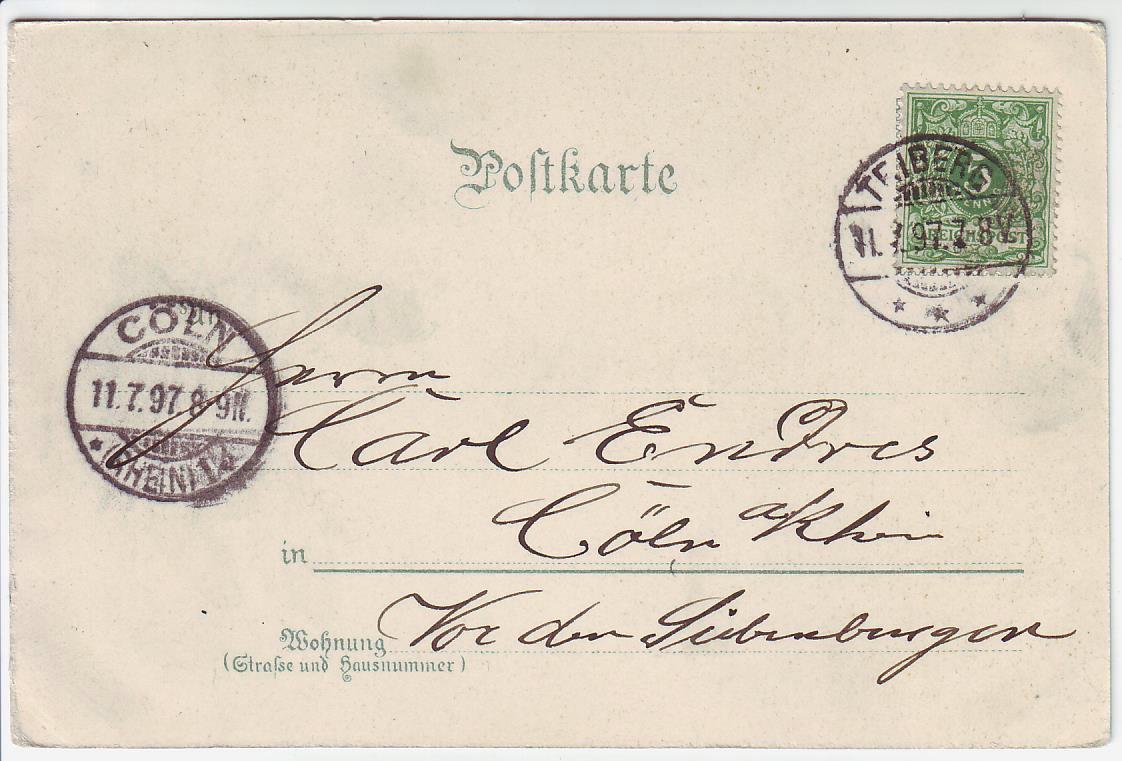 Postkarte
REICHSPOST
11.7.97. 7 8V
CÖLN
11.7.97. 8-9N.
(RHEIN)
Herrn
Carl Endres
in Cöln a/Rhein
Wohnung Vor den Siebenburgen
(Straße und Hausnummer)